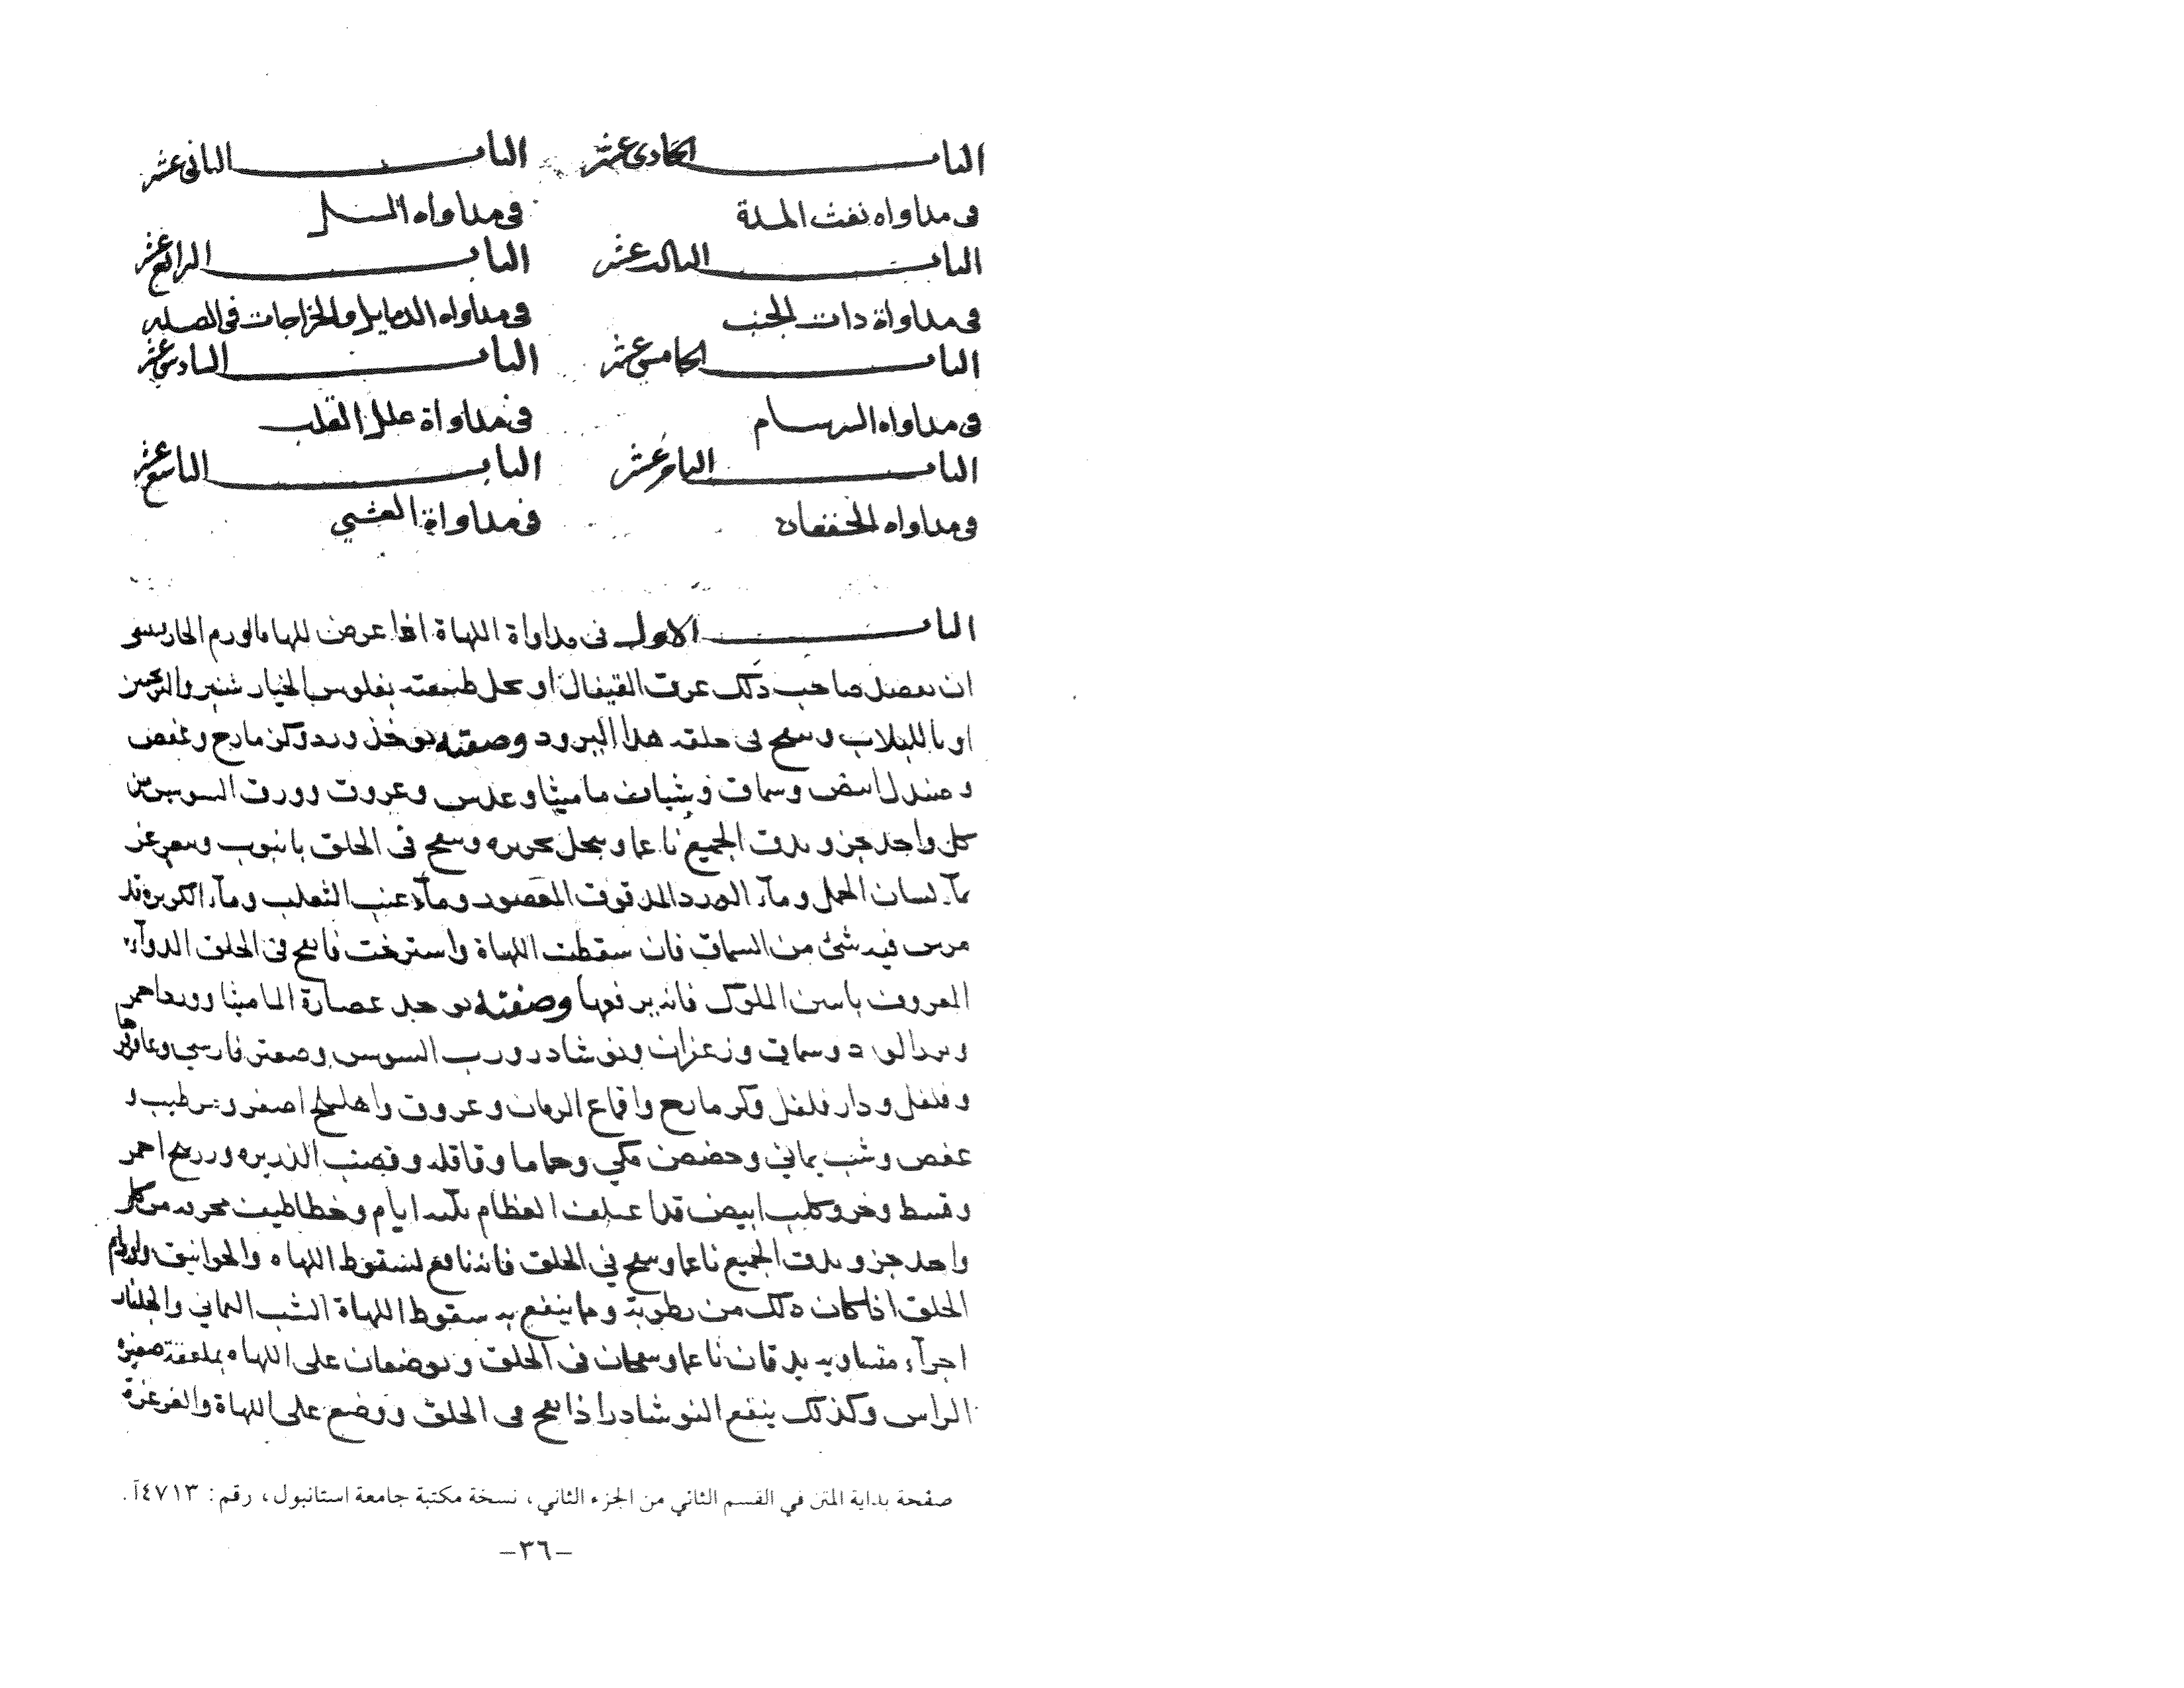 الباب الحادي عشر
في مداواه نفث المدة
الباب الثاني عشر
في مداواه السل
الباب الثالث عشر
في مداواة ذات الجنب
الباب الرابع عشر
في مداواه الدماميل والخراجات في الصدر
الباب الخامس عشر
في مداواه البرسام
الباب السادس عشر
في مداواة علل القلب
الباب الثامن عشر
في مداواه الخفقان
الباب التاسع عشر
في مداواة الغشي
الباب الاول في مداواة اللهاة اذا عرض للهاه الورم الحار ينبغي
ان يفصد صاحب ذلك عرق القيفال او يحل طبيعته بفلوس الخيار شنبر والترنجبين
او باللبلاب وينفخ في حلقه هذا البرود وصفته يوخذ ورد وكزمازج وعفص
وصندل ابيض وسماق وشياف ماميثا وعدس وعروق وورق السوسن من
كل واحد جزو يدق الجميع ناعما وينخل بحريره وينفخ في الحلق بانبوب ويتغرغر
بمآ لسان الحمل ومآء الورد المدقوق المعصور ومآء عنب الثعلب ومآء الكزبره وقد
مرس فيه شئ من السماق فان سقطت اللهاة واسترخت فانفخ في الحلق الدوآء
المعروف باسن الملوك فانه يرفعها وصفته يوخذ عصارة الماميثا وورد احمر
وسماق وزعفران ونوشادر ورب السوس وصعتر فارسي وعاقرقرحا
وفلفل ودار فلفل وكزمازج واقماع الرمان وعروق واهليلج اصفر و طيب و
عفص وشب يماني وحضض مكي وحماما وقاقله وقصب الذريره وزرنيخ احمر
وقسط وخرو كلب ابيض قد اعتلف العظام ثلثه ايام وخطاطيف محرقه من كل
واحد جزو يدق الجميع ناعما وينفخ في الحلق فانه نافع لسقوط اللهاه والخوانيق واورام
الحلق اذا كان ذلك من رطوبة ومما ينتفع به سقوط اللهاة الشب اليماني والجلنار
اجزآء متساويه يدقان ناعما وينفخان في الحلق ويوضعان على اللهاه بملعقة صغيره
الراس وكذلك ينفع النوشادر اذا نفخ في الحلق ووضع على اللهاة والغرغرة
صفحة بداية المتن في القسم الثاني من الجزء الثاني، نسخة مكتبة جامعة استانبول، رقم: ٤٧١٣آ.
–٣٦–